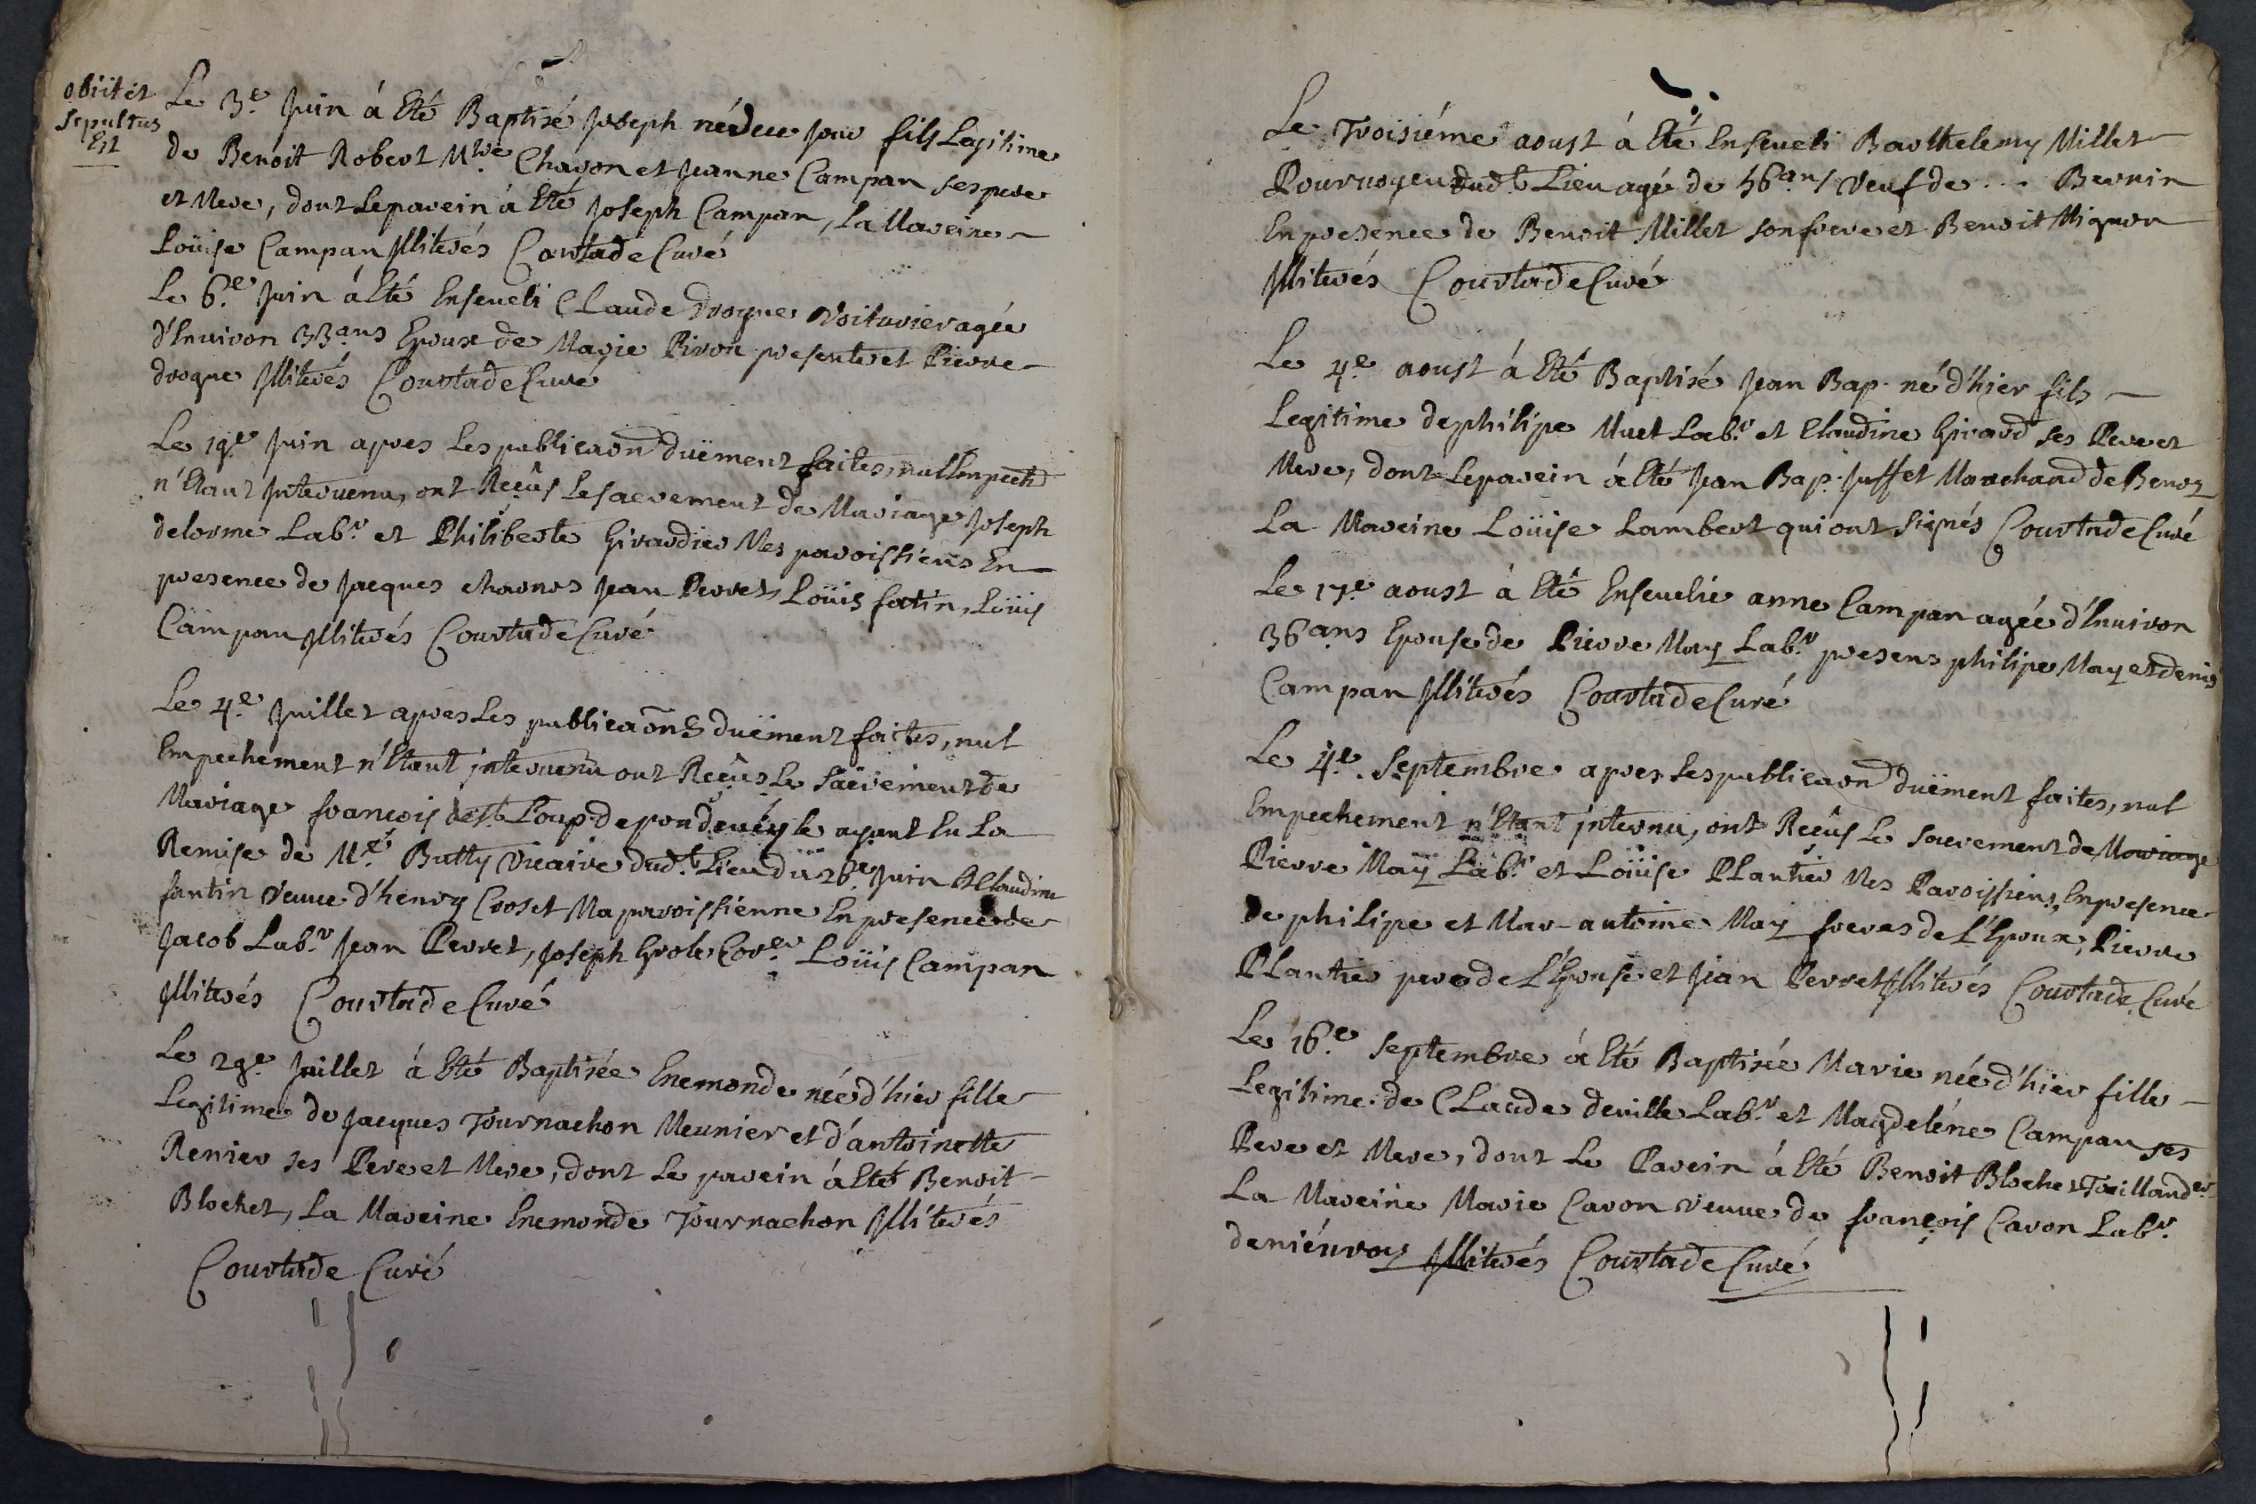 obiit et
sepultus
Est
Le 3.e Juin á Eté Baptisé Joseph né du jour fils Legitime
de Benoit Robert M.tre Charon et Jeanne Campan ses pere
et Mere, dont Le parein á Eté Joseph Campan, La Mareine
Loüise Campan Illiterés Courtade Curé
Le 6.e Juin á Eté Enseveli Claude drogue Voiturier agée
d'Environ 33 ans Epoux de Marie Piron presente et Pierre
drogue Illiterés Courtade Curé
Le 19.e Juin apres Les publicaon duëment faites, nul Empech
n'Etant Intervenu, ont Reçûs Le sacrement de Mariage Joseph
delorme Lab.r et Philiberte Girardier Mes paroissiens En
presence de Jacques charvas Jean Perret, Loüis fatin, Loüis
Campan Illiterés Courtade Curé
Le 4.e Juillet apres Les publicaons duëment faites, nul
Empechement n'Etant intervenu ont Reçûs Le Sacrement de
Mariage françois Loup de ayant Eu La
Remise de M.re Butty Vicaire dud.t Lieu du 26.e Juin & Claudine
fantin Veuve d'henry Croset Ma paroissienne En presence de
Jacob Lab.r Jean Perret, Joseph Grole Cor.er Loüis Campan
Illiterés Courtade Curé
Le 29.e Juillet á Eté Baptisée Enemonde née d'hier fille
Legitime de Jacques Tournachon Meunier et d'antoinette
Renier ses Pere et Mere, dont Le parein á Eté Benoit
Blochet, La Mareine Enemonde Tournachon Illiterés
Courtade Curé
Le Troisiéme aoust á Eté Enseveli Barthelemy Millet
Pourvoyeur dud.t Lieu agé de 56 ans Veuf de ... Bernin
En presence de Benoit Millet son frere et Benoit Mignon
Illiterés Courtade Curé
Le 4.e aoust á Eté Baptisé Jean Bap. né d'hier fils
Legitime de philipe Muet Lab.r et Claudine Girard ses Pere et
Mere, dont Le parein á Eté Jean Bap. Juffet Marchand de
La Mareine Loüise Lambert qui ont signés Courtade Curé
Le 17.e aoust á Eté Ensevelie anne Campan agée d'Environ
36 ans Epouse de Pierre May Lab.r presens philipe May et denis
Campan Illiterés Courtade Curé
Le 4.e Septembre apres Les publicaon duëment faites, nul
Empechement n'Etant intervnu, ont Reçûs Le sacrement de Mariage
Pierre May Lab.r et Loüise Plantier Mes Paroissiens, En presence
de philipe et Mar-antoine May freres de L'Epoux, Pierre
Plantier pere de L'Epouse et Jean Perret Illiterés Courtade Curé
Le 16.e Septembre á Eté Baptisée Marie née d'hier fille
Legitime de Claude deville Lab.r et Magdeléne Campan ses
Pere et Mere, dont Le Parein á Eté Benoit Blochet Taillandr
La Mareine Marie Caron veuve de françois Caron Lab.r
de niévroz Illiterés Courtade Curé